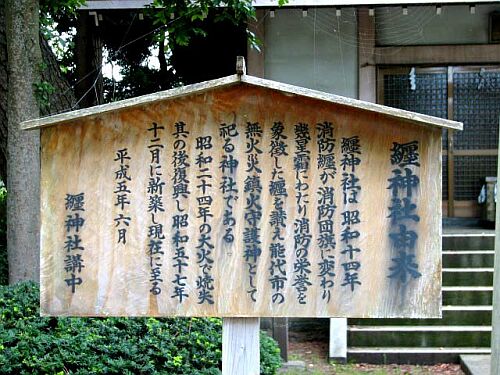 纏神社由来
纏神社は 昭和十四年
消防纏が消防団旗に変わり
幾星霜にわたり消防の栄誉を
象徴した纏を戴え能代市の
無火災鎮火守護神として
祀る神社である
昭和二十四年の大火で焼失
其の後復興し昭和五十七年
十二月に新築し現在に至る
平成五年 六月
纏神社講中